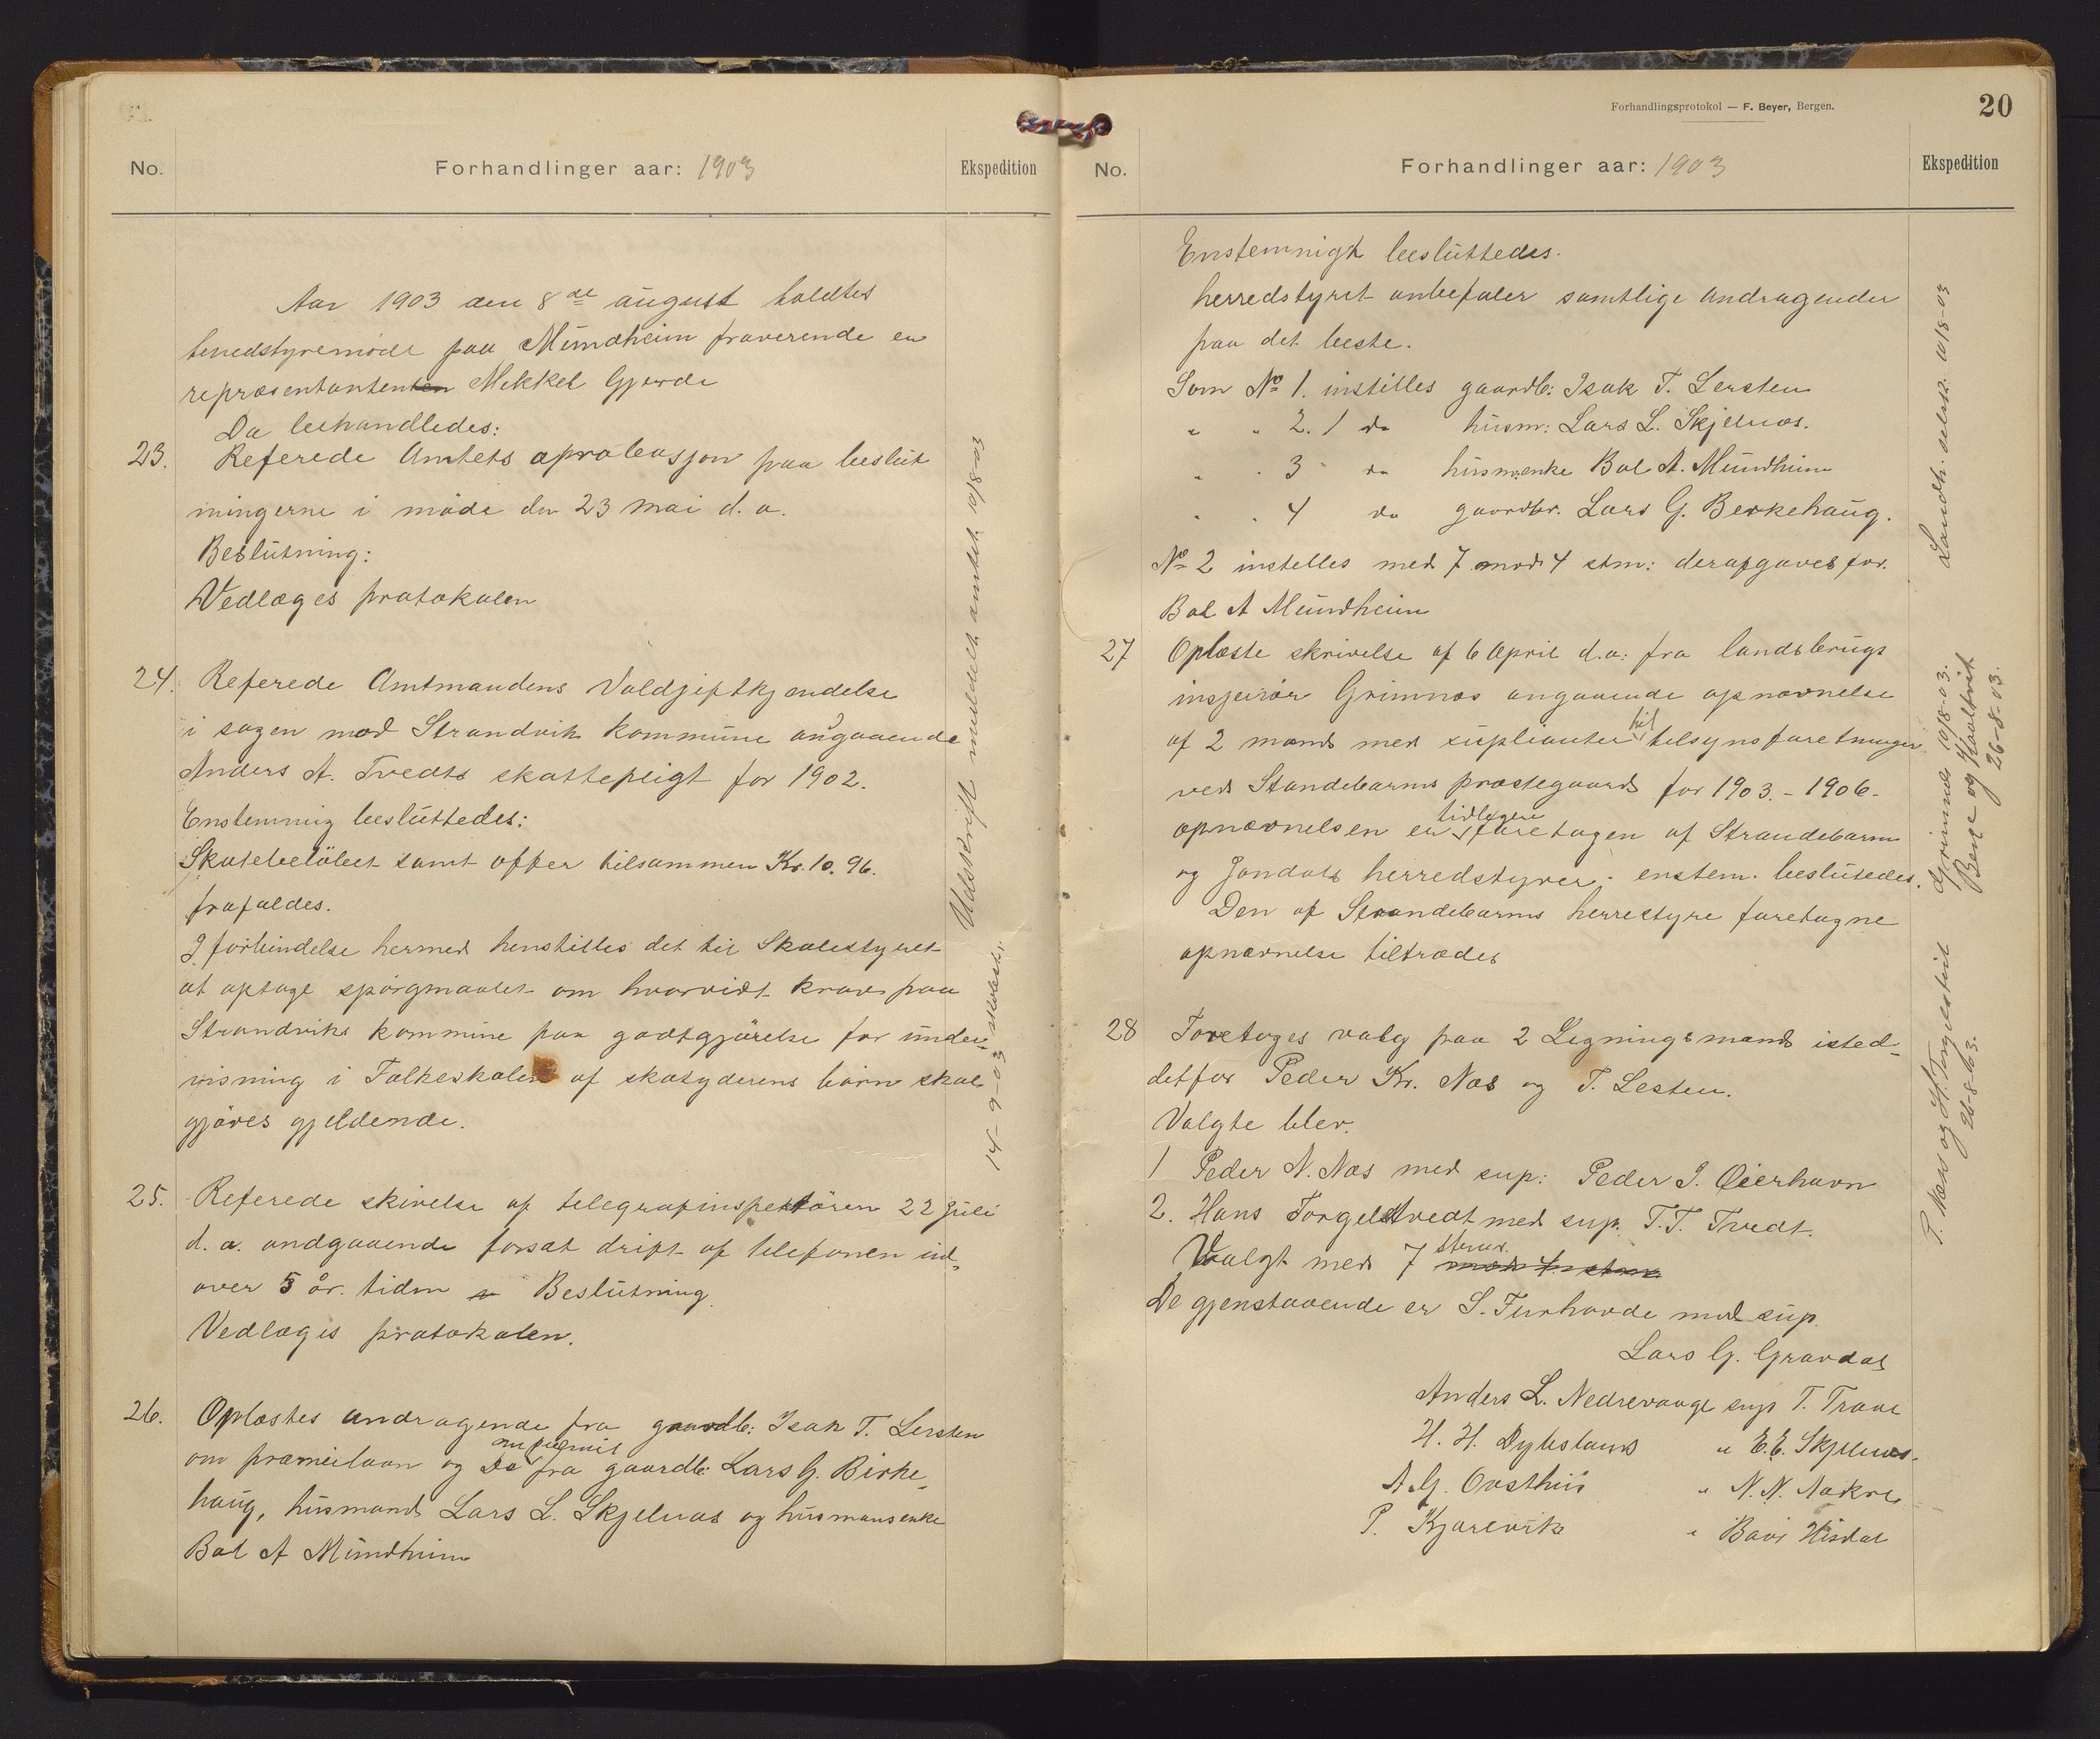 No.
Forhandlinger aar: 1903
Ekspedition
Aar 1903 den 8de august holdtes
herredstyremöde paa Mundheim fraverende en
representantenten Mikkel Gjerde
Da behandledes:
23. Referede Amtets aprobasjon paa beslut
ningerne i möde den 23 mai d. a.
Beslutning:
Vedlæges protokolen
24. Referede Amtmandens Voldgiftkjendelse
i sagen mod Strandvik kommune angaaende
Anders A. Tvedts skattepligt for 1902.
Enstemmig besluttedes:
Skatebelöbet samt offer tilsammen Kr. 10.96.
frafaldes.
I forbindelse hermed henstilles det til Skolestyret
at optage spörgmaalet om hvorvidt krav paa
Strandviks kommune paa godtgjörelse for under-
visning i Folkeskolen af skatyderens börn skal
gjöres gjeldende.
25. Referede skivelse af telegrafinspektören 22 Juli
d. a. andgaaende forsat drift af telefonen ud-
over 5 år. tiden Beslutning
Vedlæges protokolen.
26. Oplæstes andragende fra gaardb: Isak T. Lersten
om præmielaan og Do fra gaardb: Lars G. Birke-
haug, husmand Lars L. Skjelnæs og husmansenke
Bol A Mundheim
Udskrift meddelt amtet 10/8-03
14-9-03 skolestr.
Forhandlingsprotokol — F. Beyer, Bergen.
20
No.
Forhandlinger aar: 1903
Ekspedition
Enstemnigt besluttedes.
herredstyret anbefaler samtlige andragender
paa det beste.
Som No 1. instilles gaardb: Isak T. Lersten
" " 2. 1 do husm: Lars L. Skjelnæs.
" " 3 do husm.enke Bol A. Mundheim
" " 4 do gaardbr. Lars G. Berkehaug.
No 2 instelles med 7 mod 4 stm: derafgaves for.
Bol A Mundheim
27 Oplæste skrivelse af 6 April d.a: fra landsbrugs
Grimnæs angaaende opnævnelse
af 2 mænd med suplianter til tilsynsforetninger
ved Standebarms præstegaard for 1903.-1906.
opnævnelsen er tidlegere foretagen af Strandebarm
og Jondals herredstyrer. enstem. beslutedes.
Den af Strandebarms herrestyre foretagne
opnævnelse tiltrædes
28 Foretages valg paa 2 Ligningsmænd isted-
detfor Peder Kr. Næs og T. Lesten.
Valgte blev.
1 Peder N. Næs med sup: Peder J. Oierhavn
2. Hans Torgelstvedt med sup. T.T. Tvedt.
Valgt med 7 stemr. mod 4 stm
De gjenstaaende er S. Furhovde med sup.
Lars G. Gravdal
Anders L. Nedrevaage sup T. Traae
H. H. Dyhsland " E.E. Skjelnæs.
A. G. Oasthus " N. N. Aakre
P. Kjærevik " Baar Hisdal
Landh. selsk. 10/8-03
Grimnæs 10/8-03.
Berge og Haaltvit
26-8-03.
P. Næs og H. Torgelstveit
26-8-03.